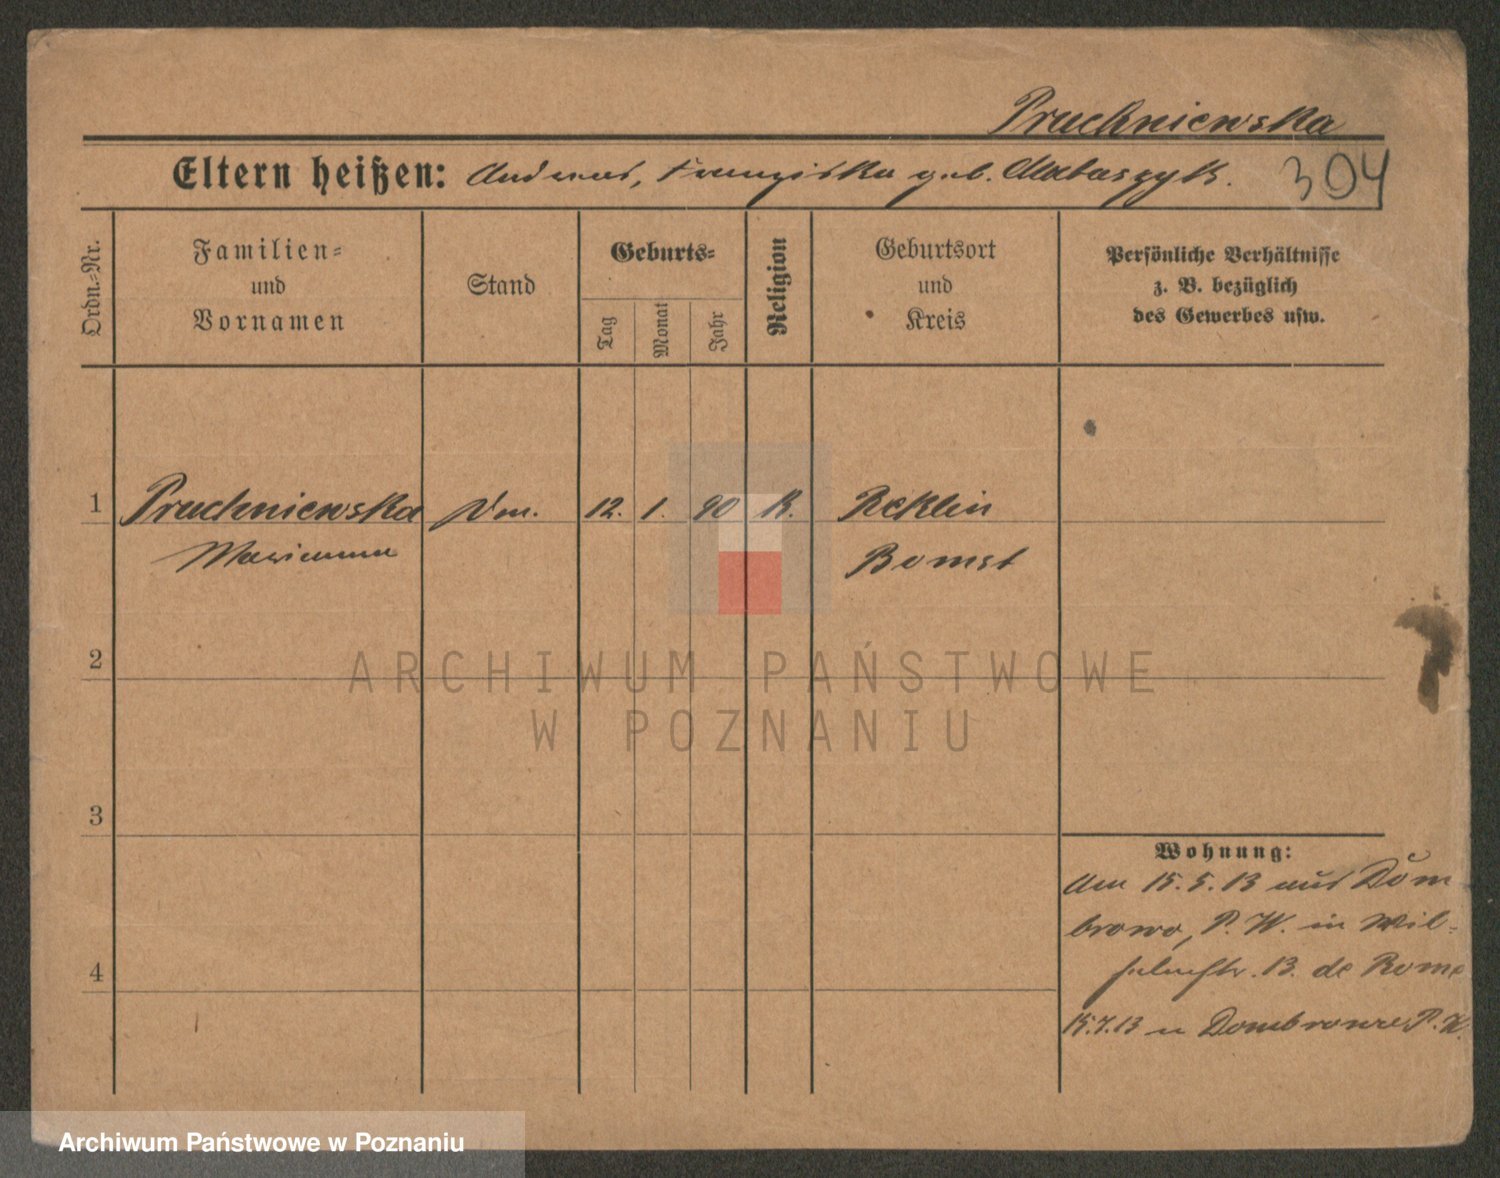 Pruchniewska
Eltern heißen: Andreas, Franziska geb. Mataszyk. 304
Ordn.-Nr.
Familien-
und
Vornamen
Stand
Geburts-
Tag
Monat
Jahr
Religion
Geburtsort
und
Kreis
Persönliche Verhältnisse
z. B. bezüglich
des Gewerbes usw.
1 Pruchniewska 12. 1. 90 K. Reklin
Marianna Bomst
2
ARCHIWUM PAŃSTWOWE
W POZNANIU
3
Wohnung:
Am 15.5.13 aus Dom
browo, P. W. in Wil-
helmstr. 13. de Rome
4
15.7.13 n Dombrowre P. W.
Archiwum Państwowe w Poznaniu